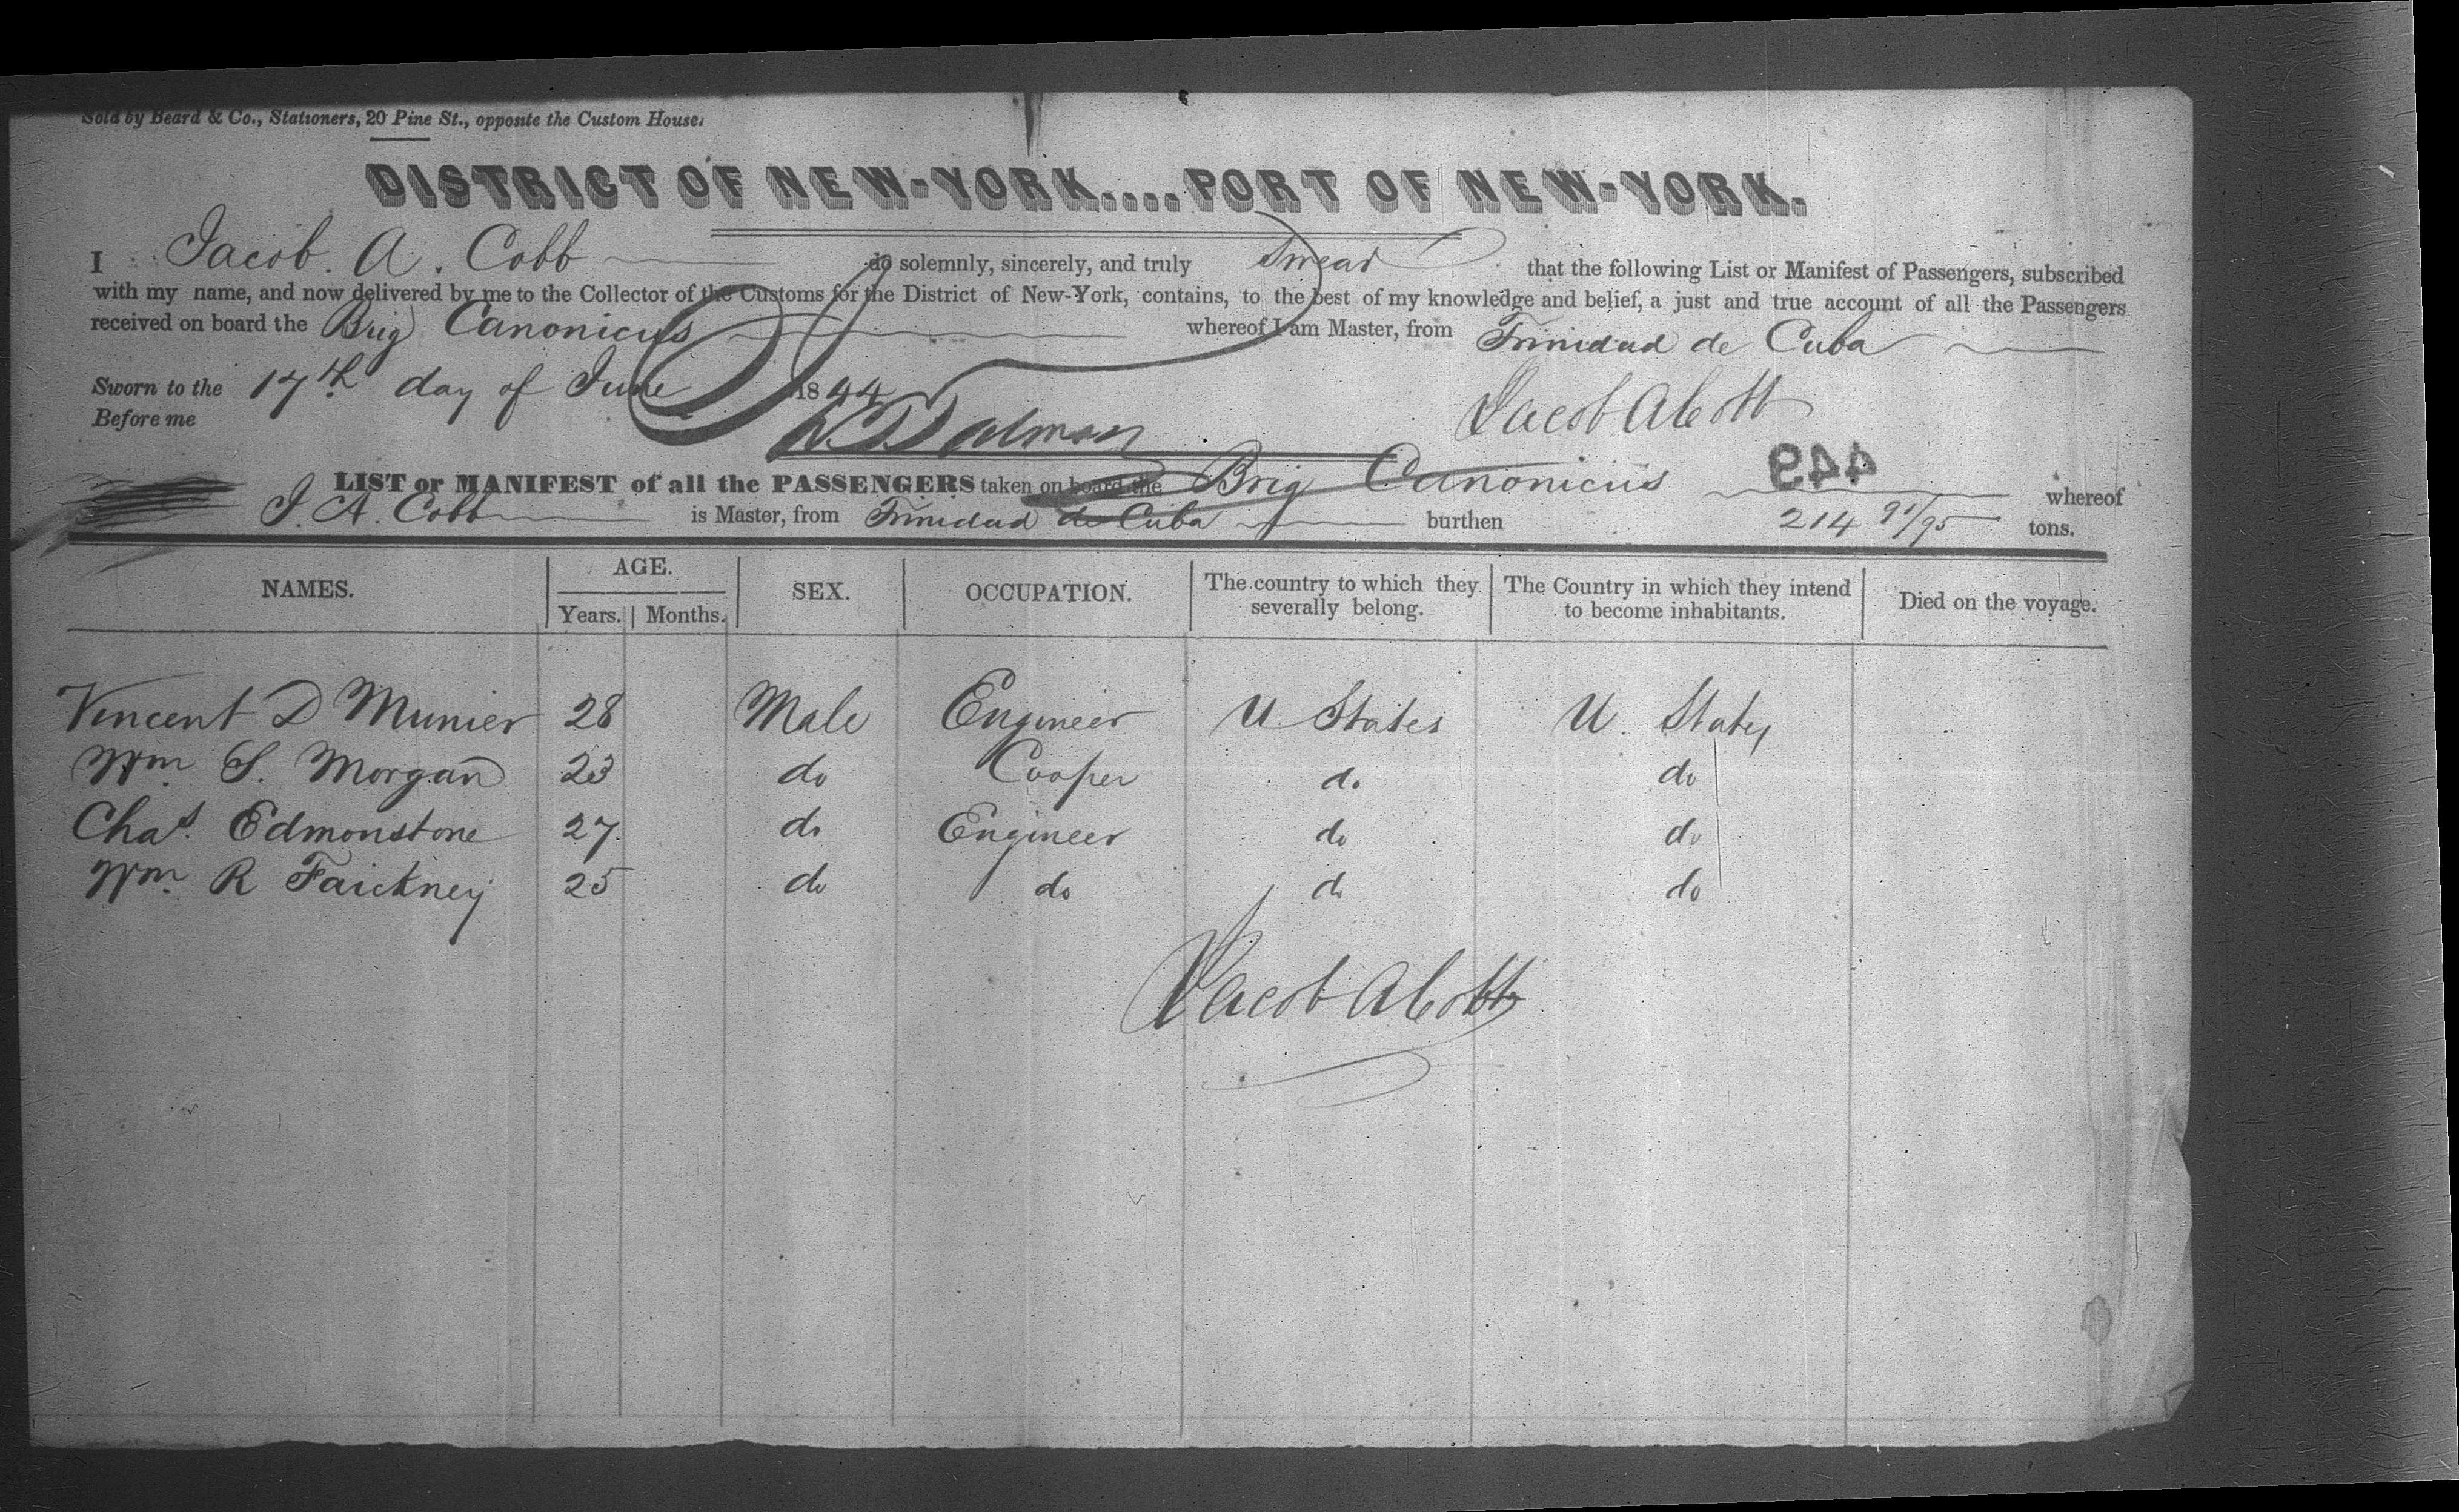 Sold by Beard & Co., Stationers, 20 Pine St., opposite the Custom House.
DISTRICT OF NEW-YORK....PORT OF NEW-YORK.
I Jacob. A. Cobb do solemnly, sincerely, and truly Swear that the following List or Manifest of Passengers, subscribed
with my name, and now delivered by me to the Collector of the Customs for the District of New-York, contains, to the best of my knowledge and belief, a just and true account of all the Passengers
received on board the Brig Canonicus whereof I am Master, from Trinidad de Cuba
Sworn to the 17th day of June 1844
Before me
Jacob A Cobb
449
LIST or MANIFEST of all the PASSENGERS taken on board the Brig Canonicus whereof
J. A. Cobb is Master, from Trinidad de Cuba burthen 214 91/95 tons.
NAMES. AGE. Years. Months. SEX. OCCUPATION. The country to which they severally belong. The Country in which they intend to become inhabitants. Died on the voyage.
Vincent D Munier 28 Male Engineer U States U. States
Wm S. Morgan 23 do Cooper do do
Chas. Edmonstone 27 do Engineer do do
Wm R Faickney 25 do do do do
Jacob A Cobb